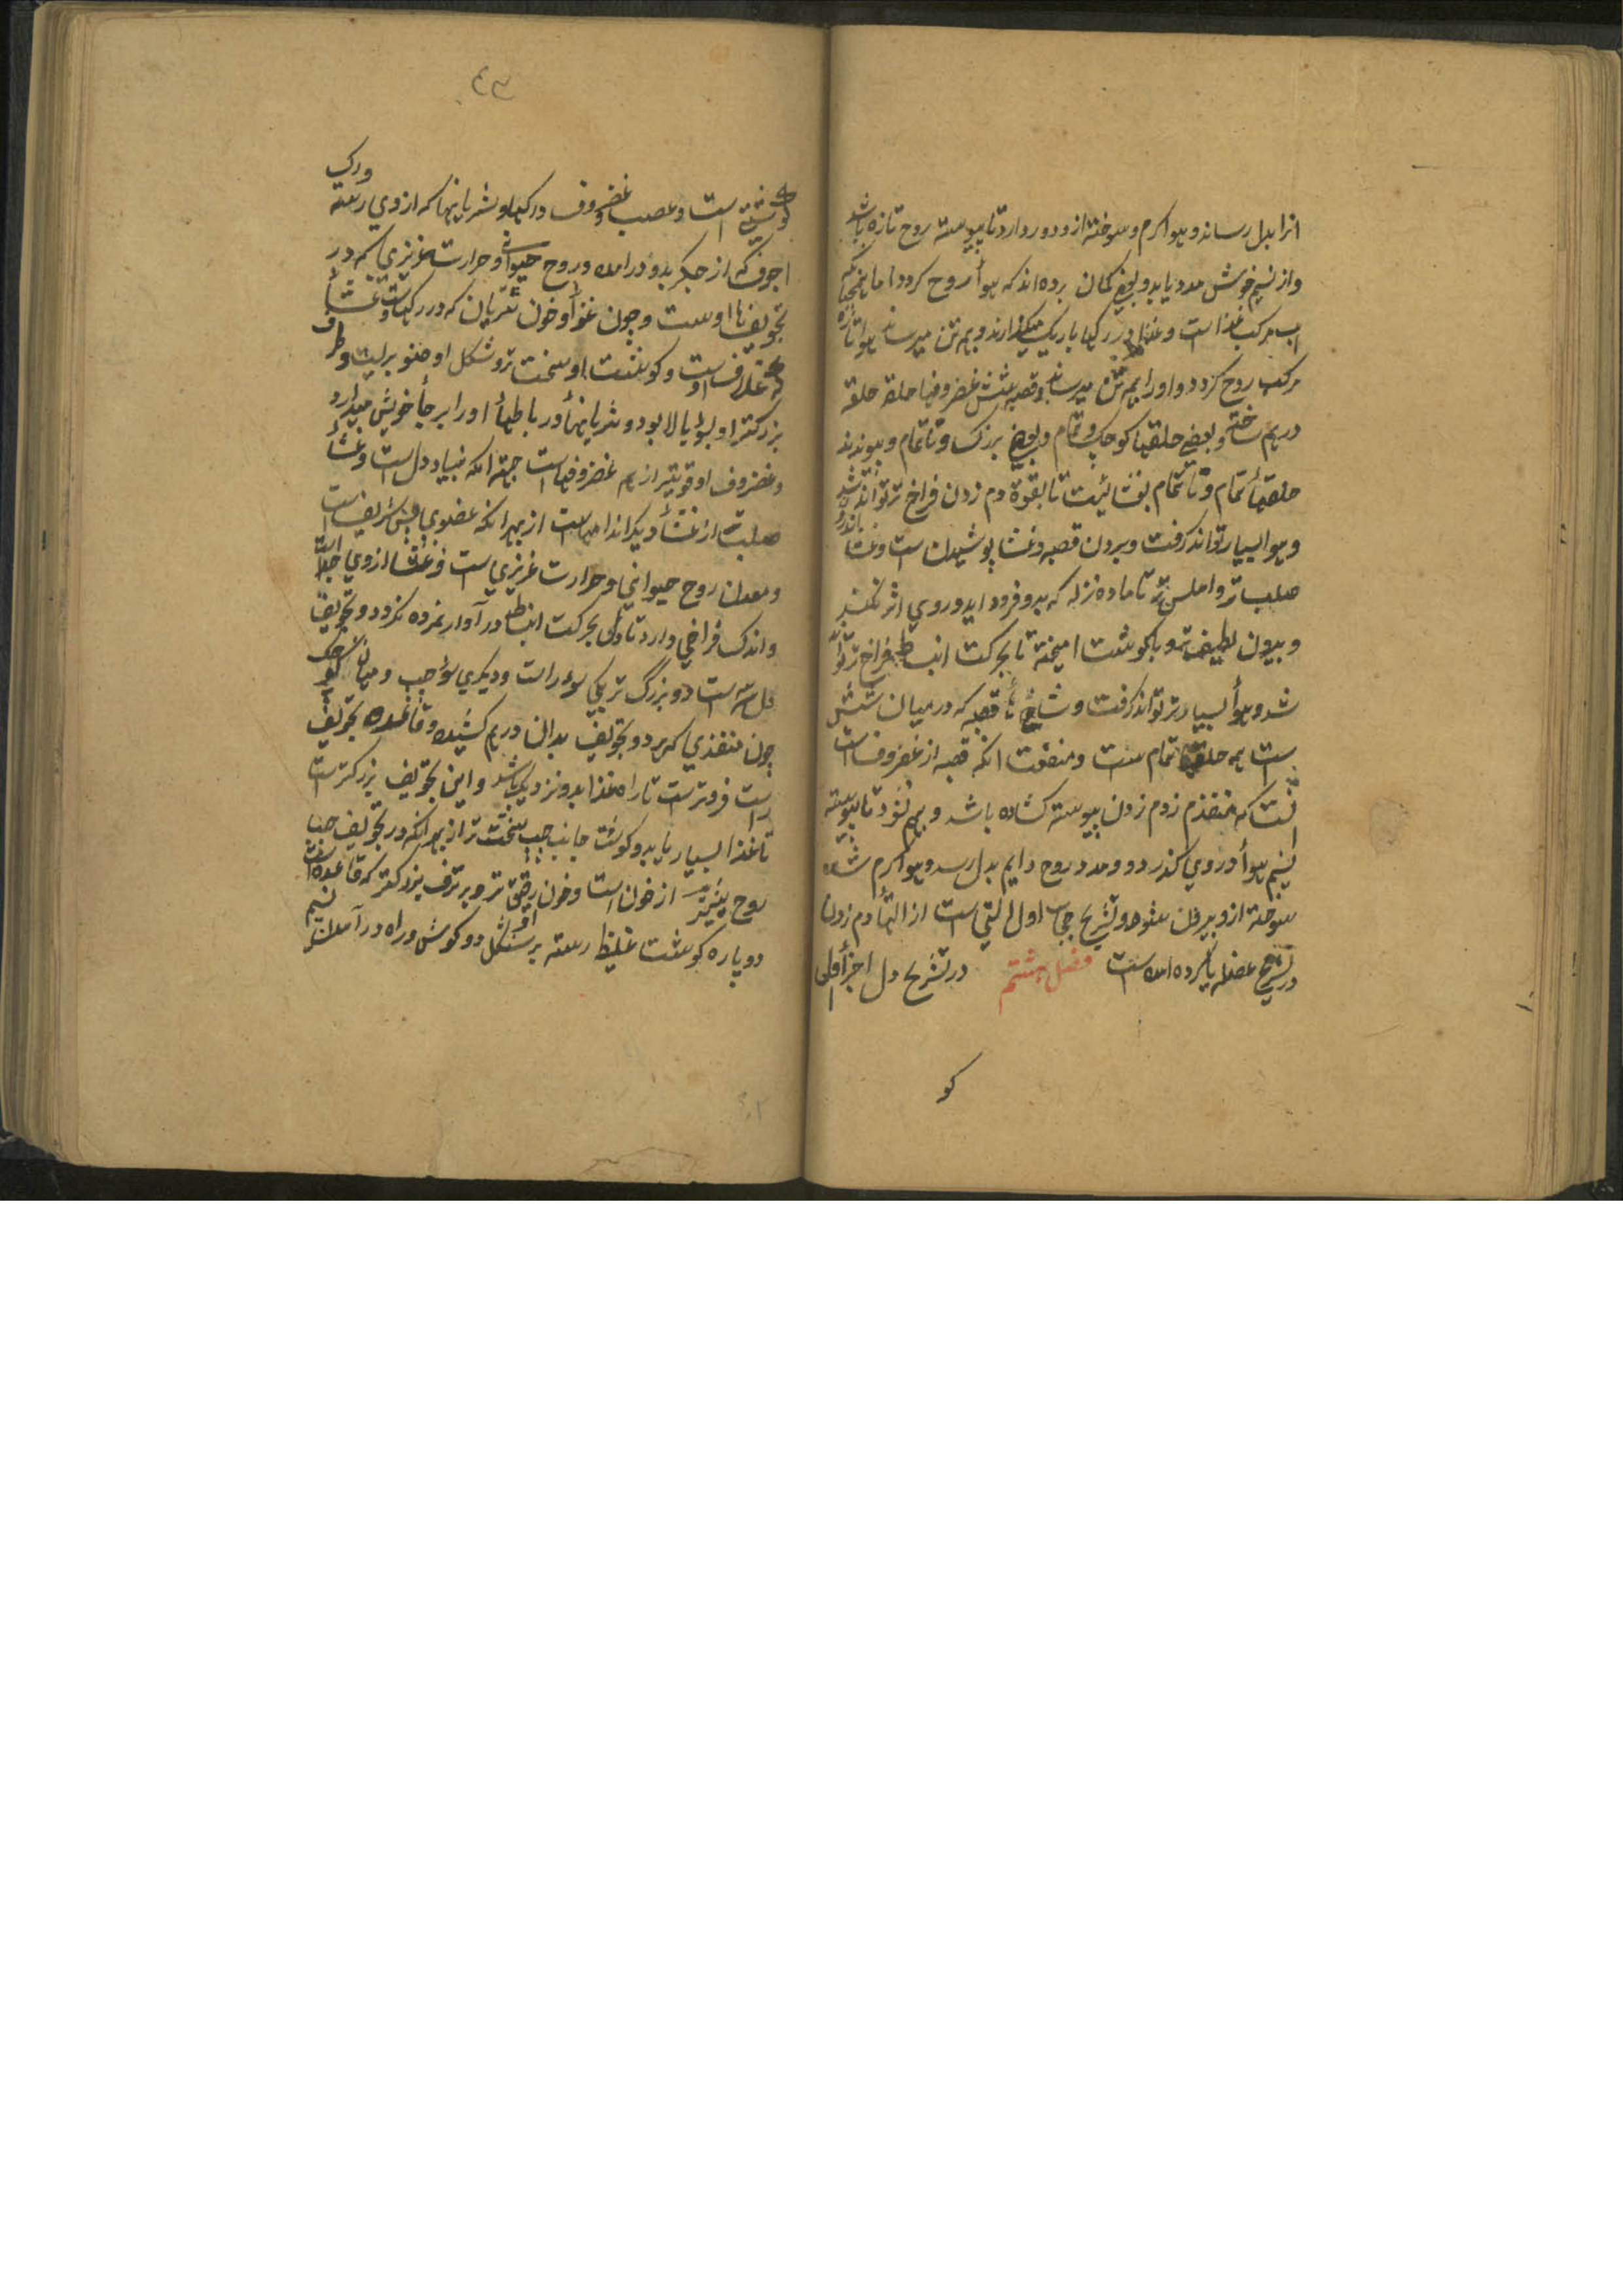 انرا بدل رساند و هواگرم و سوخته از و دور دارد تا پیوسته روح تازه باشد
و از نسیم خوش مدد یابد و بعضی کمان برده اند که هوا روح کردد اما همچنانکه
اب مرکب غذا است و غذا در رکها باریک میکذارند و بهم تن میرساند هوا تازه
مرکب روح کردد و اورا بهم تن میرساند و قصبه شش غضروفها حلقه حلقه
درهم ساخته و بعضی حلقها کوچک و تمام و بعضی بزرک و ناتمام و پیوندند
حلقهأ تمام و ناتمام بغشائیست تا بقوة دم زدن فراخ تر تواند شد
و هوا بسیار تواند کرفت و بیرون قصبه و غشا پوشیدن است و غشا اندرون
صلب تر و املس تر تا ماده نزله که بدو فرود اید در وی اثر نکند
و بیرون لطیف تر و با کوشت امیخته تا بحرکت انبساط فراخ تر تواند
شد و هوأ بسیارتر تواند کرفت و شاخهأ قصبه که در میان شش
است همه حلقها تمام است و منفعت انکه قصبه از غضروف است
انست که منفذ دم زدن پیوسته کشاده باشد و بهم نشود تا پیوسته
نسیم هوأ در وی کذرد و مدد روح دایم بدل رسد و هواگرم شده
سوخته از و بیرون شود و تشریح حجاب اول التی است از التهأ دم زدن
در تشریح عضلها یاد کرده امده است فصل هشتم در تشریح دل اجزأ دل
کو
٤٣
ورک
کوشت است و عصب و غضروف و رکها و شریانها که از وی رسته
اجوف که از جکر بدو درامده و روح حیوانی و حرارت غریزی که در
تجویفها اوست و چون غذأ و خون شریان که در رکهاست و غشأ
که غلاف اوست و کوشت او سخت تر و شکل او صنوبریست و طرف
بزرکتر او سؤ بالا بود و شریانها و رباطهأ اورا بر جأ خویش میدارد
و غضروف او قویتر از همه غضروفهاست جهة انکه بنیاد دل است و غشأ
صلب تر از غشأ دیکر اندامهاست از بهر انکه عضوی بس شریف است
و معدن روح حیوانی و حرارت غریزی است و غشا از وی جداست
و اندک فراخی دارد تا دل بحرکت انبساط در آوار نمرده نکردد و تجویف
دل سه است دو بزرگ تر یکی سؤ راست و دیکری سؤ چپ و میان کوچک
چون منفذی که هر دو تجویف بدان درهم کشیده و قاعده تجویف
راست فروتر است تا راه غذا بدو نزدیک باشد و این تجویف بزرکتر است
تا غذا بسیار یابد و کوشت جانب چپ سخت تر از بهر انکه در تجویف چپ
روح بیشتر از خون است و خون رقیق تر و بر طرف بزرکتر که قاعده است
دو پاره کوشت غلیظ رسته بر شکل دو کوش و راه در آمدن نسیم